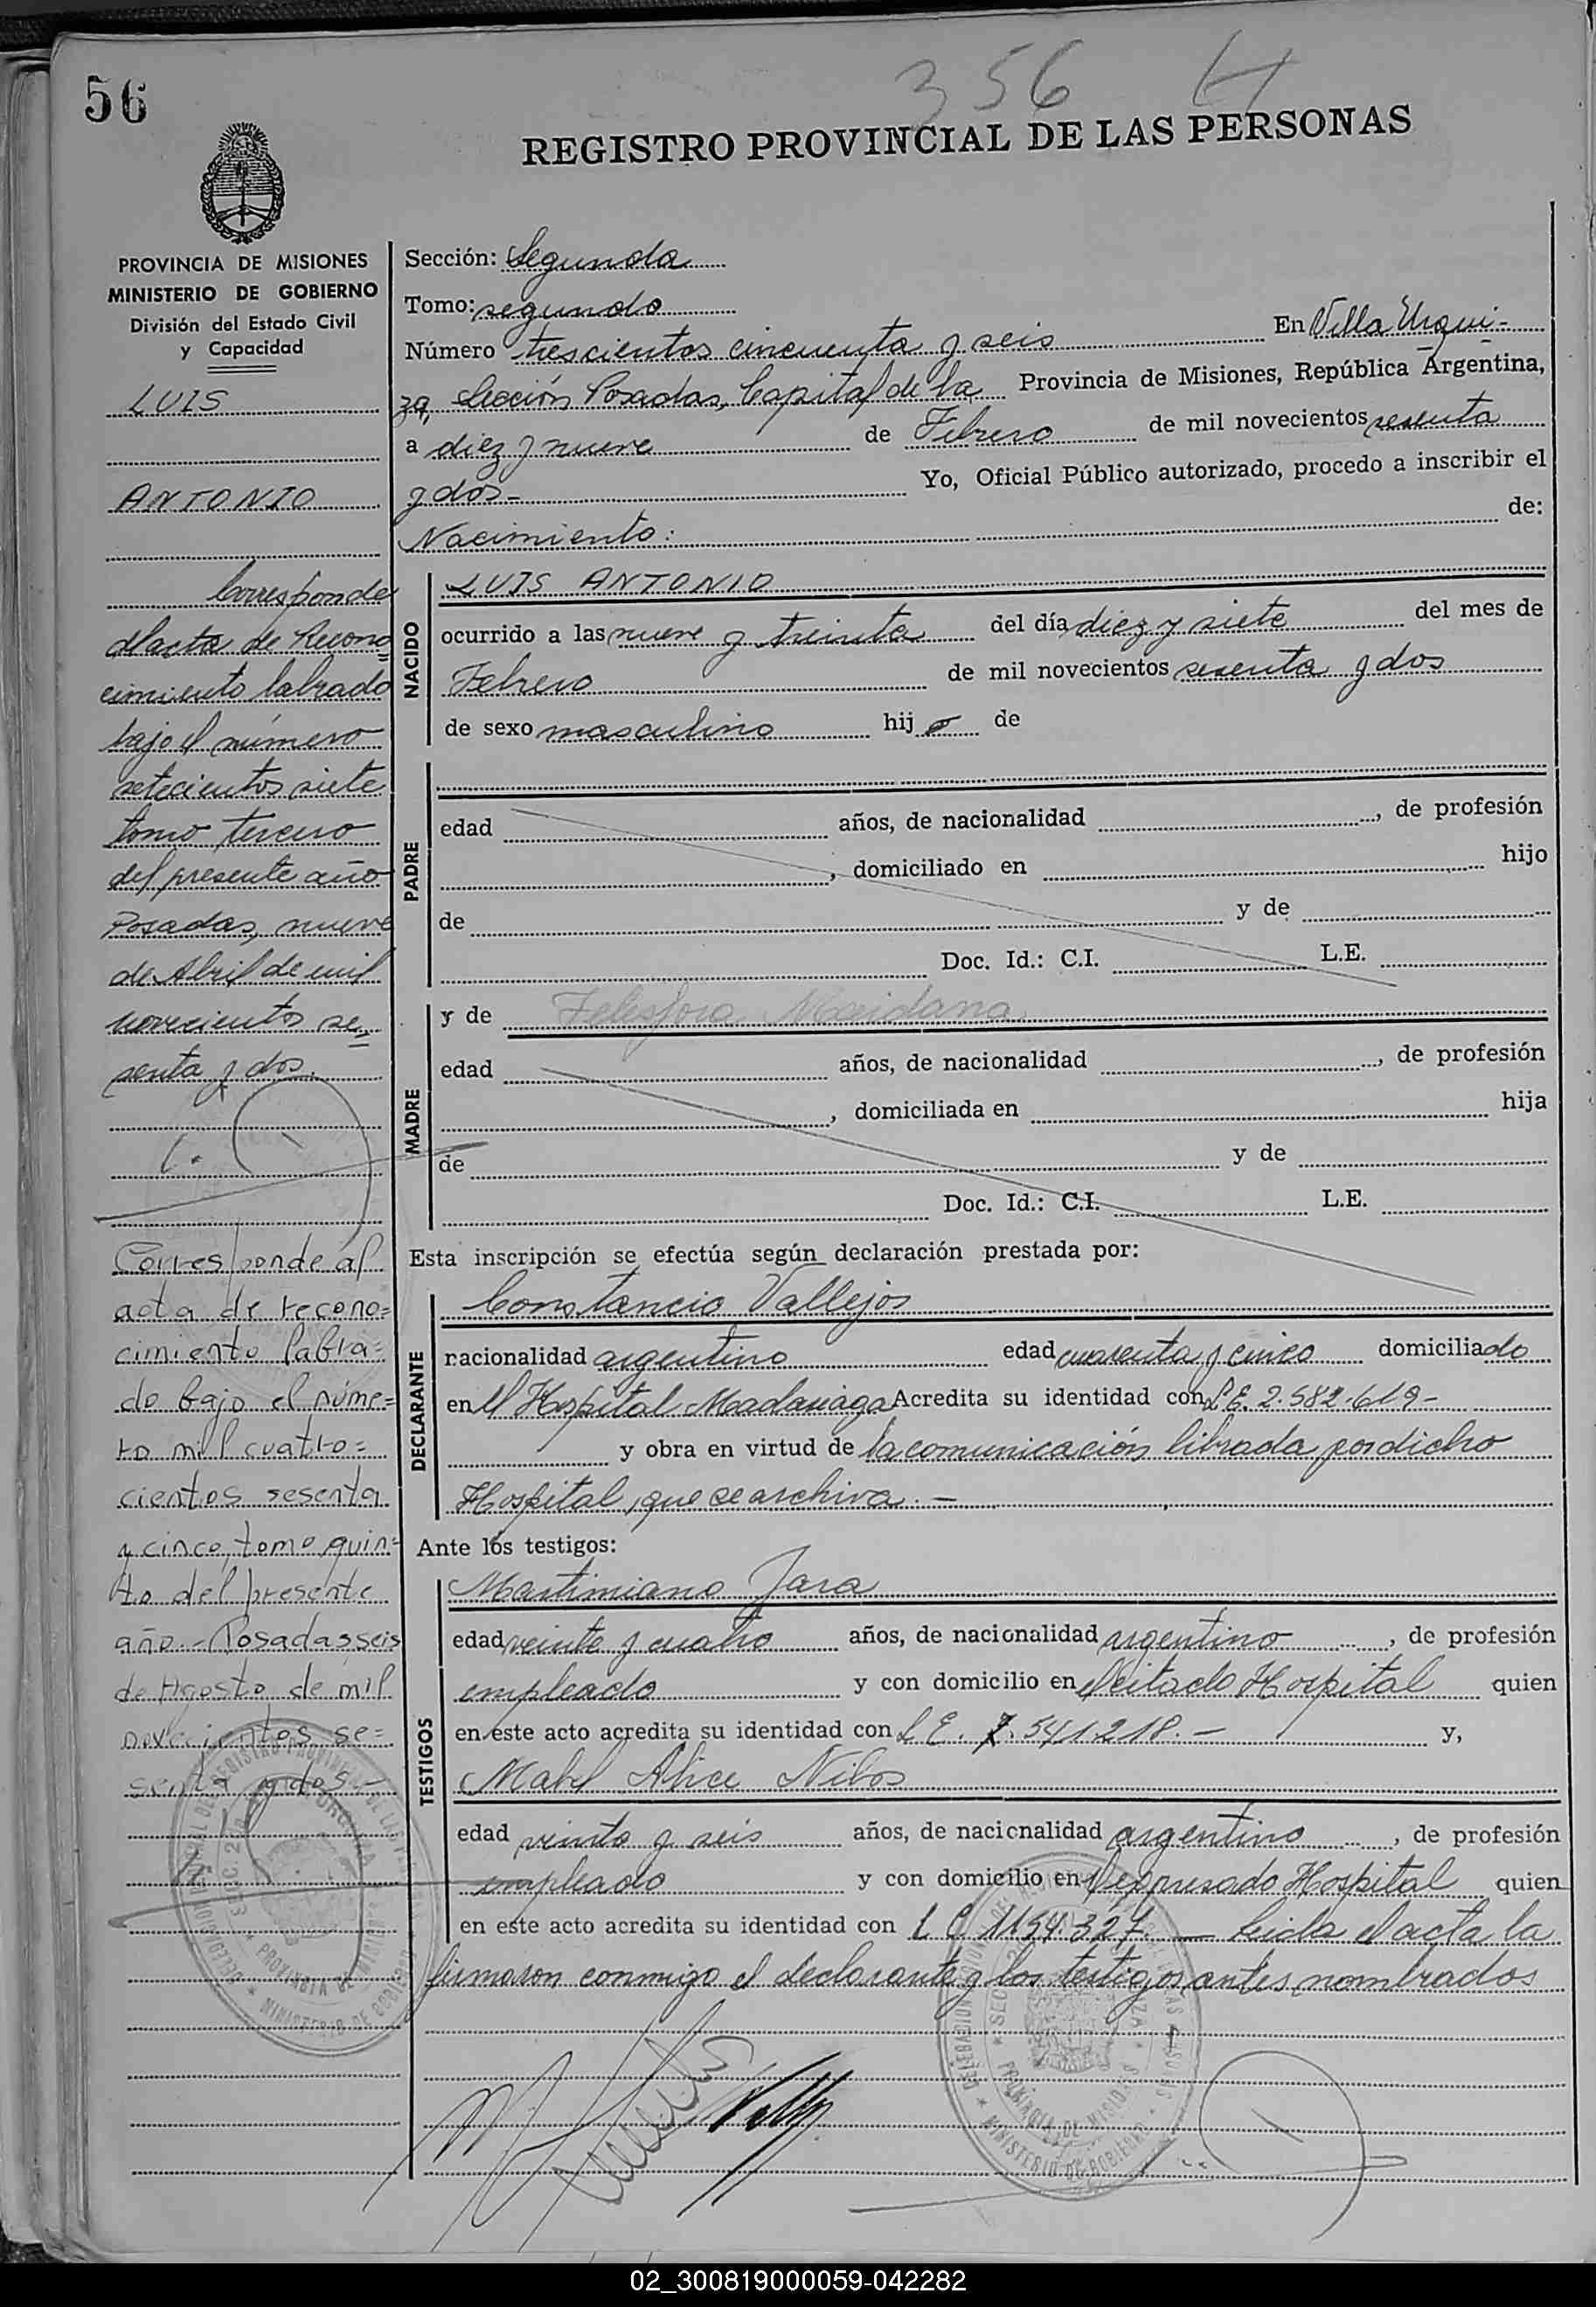 56
356
REGISTRO PROVINCIAL DE LAS PERSONAS
PROVINCIA DE MISIONES
MINISTERIO DE GOBIERNO
División del Estado Civil
y Capacidad
LUIS
ANTONIO
Corresponde
al acta de Recono=
cimiento labrado
bajo el número
setecientos siete
tomo tercero
del presente año
Posadas, nueve
de Abril de mil
novecientos se=
senta y dos.
Corresponde al
acta de recono=
cimiento labra=
do bajo el núme=
ro mil cuatro=
cientos sesenta
y cinco, tomo quin=
to del presente
año.- Posadas seis
de Agosto de mil
novecientos se=
senta y dos.-
Sección: Segunda
Tomo: segundo
Número trescientos cincuenta y seis En Villa Urqui-
za, Sección Posadas, Capital de la Provincia de Misiones, República Argentina,
a diez y nueve de Febrero de mil novecientos sesenta
y dos- Yo, Oficial Público autorizado, procedo a inscribir el
Nacimiento: de:
NACIDO
LUIS ANTONIO
ocurrido a las nueve y treinta del día diez y siete del mes de
Febrero de mil novecientos sesenta y dos
de sexo masculino hijo de
PADRE
edad años, de nacionalidad , de profesión
, domiciliado en hijo
de y de
Doc. Id.: C.I. L.E.
MADRE
y de Telesfora Maidana
edad años, de nacionalidad , de profesión
, domiciliada en hija
de y de
Doc. Id.: C.I. L.E.
Esta inscripción se efectúa según declaración prestada por:
DECLARANTE
Constancio Vallejos
racionalidad argentino edad cuarenta y cinco domiciliado
en el Hospital Madariaga Acredita su identidad con L.E. 2.582.619-
y obra en virtud de la comunicación librada por dicho
Hospital, que se archiva.-
Ante los testigos:
TESTIGOS
Martimiano Jara
edad veinte y cuatro años, de nacionalidad argentino , de profesión
empleado y con domicilio en el citado Hospital quien
en este acto acredita su identidad con L.E. 7.541.218.- y,
Mabel Alice Nibos
edad veinte y seis años, de nacionalidad argentino , de profesión
empleado y con domicilio en el expresado Hospital quien
en este acto acredita su identidad con L.C. 1154.327.- Leida el acta la
firmaron conmigo el declarante y los testigos antes nombrados
02_300819000059-042282